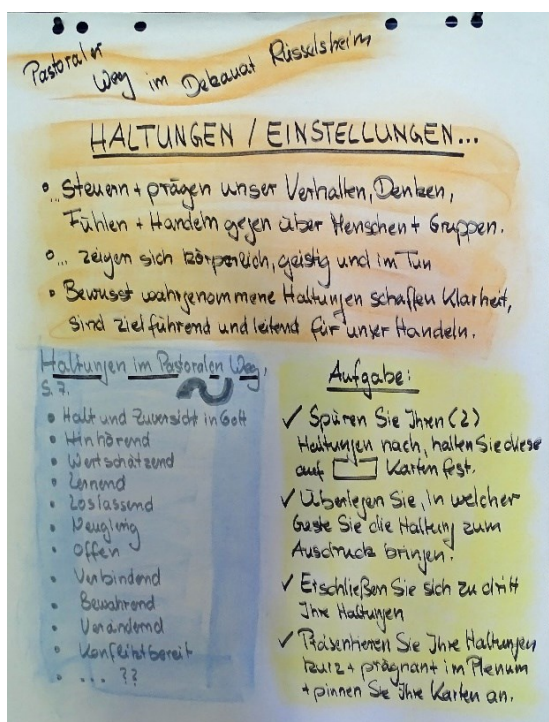 Pastoraler
Weg im Dekanat Rüsselsheim
HALTUNGEN / EINSTELLUNGEN...
• ... steuern + prägen unser Verhalten, Denken,
Fühlen + Handeln gegenüber Menschen + Gruppen.
• ... zeigen sich körperlich, geistig und im Tun
• Bewusst wahrgenommene Haltungen schaffen Klarheit,
sind zielführend und leitend für unser Handeln.
Haltungen im Pastoralen Weg,
S. 7.
• Halt und Zuversicht in Gott
• Hinhörend
• Wertschätzend
• Lernend
• Loslassend
• Neugierig
• Offen
• Verbindend
• Bewahrend
• Verändernd
• Konfliktbereit
• ... ??
Aufgabe:
✓ Spüren Sie Ihren (2)
Haltungen nach, halten Sie diese
auf Karten fest.
✓ Überlegen Sie, in welcher
Geste Sie die Haltung zum
Ausdruck bringen.
✓ Erschließen Sie sich zu dritt
Ihre Haltungen
✓ Präsentieren Sie Ihre Haltungen
kurz + prägnant im Plenum
+ pinnen Sie Ihre Karten an.